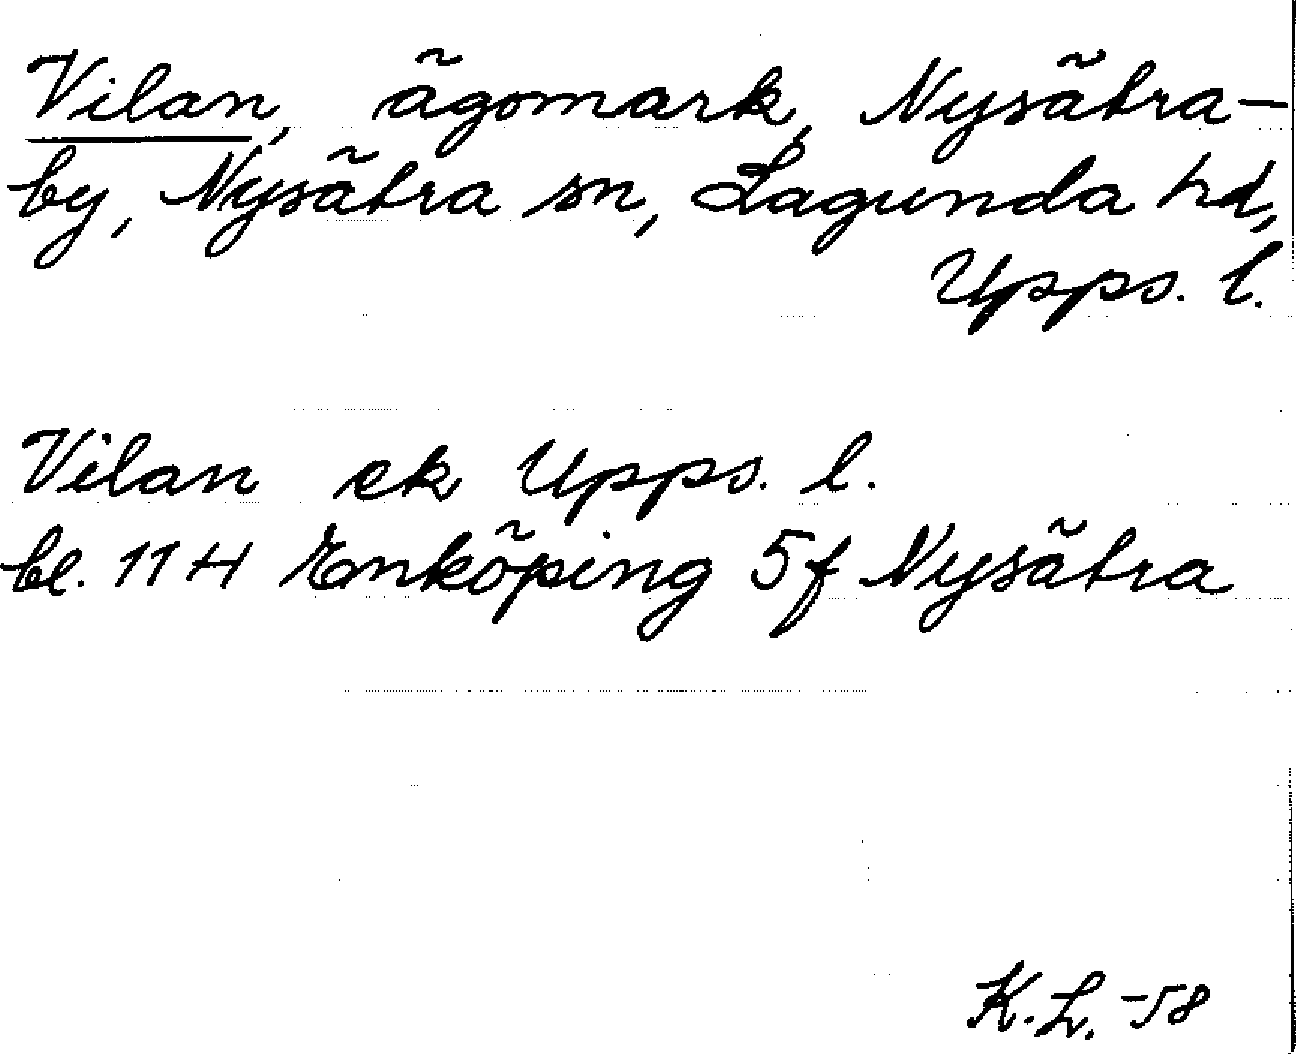 Vilan, ägomark, Nysätra-
by, Nysätra sn, Lagunda hd,
Upps. l.
Vilan ek Upps. l.
bl. 114 Enköping 5f Nysätra
K.L. -58